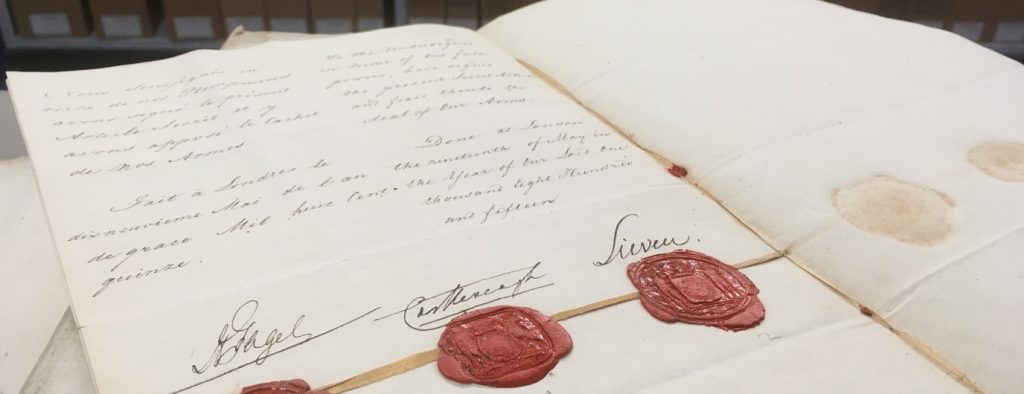 Nous Soussignés en
vertu de nos Pleinpouvoirs
avons signé le présent
Article Secret et y
avons apposé le Cachet
de Nos Armes.
Fait à Londres le
dixneuvieme Mai de l'an
de grace Mil huit Cent
quinze.
the Undersigned
in virtue of Our full
powers, have signed
the present Secret Article
and fixed thereto the
Seal of Our Arms.
Done at London
the nineteenth of May in
the Year of Our Lord One
thousand Eight Hundred
and fifteen
H Fagel
Castlereagh
Lieven.